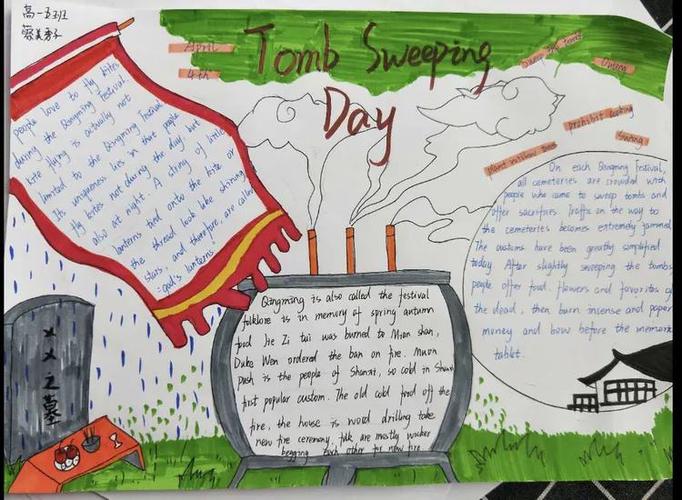 高一5班
April
4th
Tomb Sweeping
Day
Sweep the tomb
prohibit cooking
swing
plant willow trees
people love to fly kites
during the Qingming Festival.
Kite flying is actually not
limited to the Qingming Festival
Its uniqueness lies in that people
fly kites not during the day but
also at night. A string of little
lanterns tied onto the kite or
the thread look like shining
stars, and therefore, are called
"god's lanterns."
On each Qingming Festival,
all cemeteries are crowded with
people who came to sweep tombs and
offer sacrifices. Traffic on the way to
the cemeteries becomes extremely jammed.
The customs have been greatly simplified
today. After slightly sweeping the tombs,
people offer food, flowers and favorites of
the dead, then burn incense and paper
money and bow before the memorial
tablet.
Qingming is also called the festival
folklore is in memory of spring autumn
food Jie Zi tui was burned to Mian shan,
Duke Wen ordered the ban on fire. Muon
push is the people of Shanxi, so cold in Shanxi
first popular custom. The old cold food off the
fire, the house is wood drilling take
new fire ceremony, folk are mostly
begging each other for new fire
××之墓